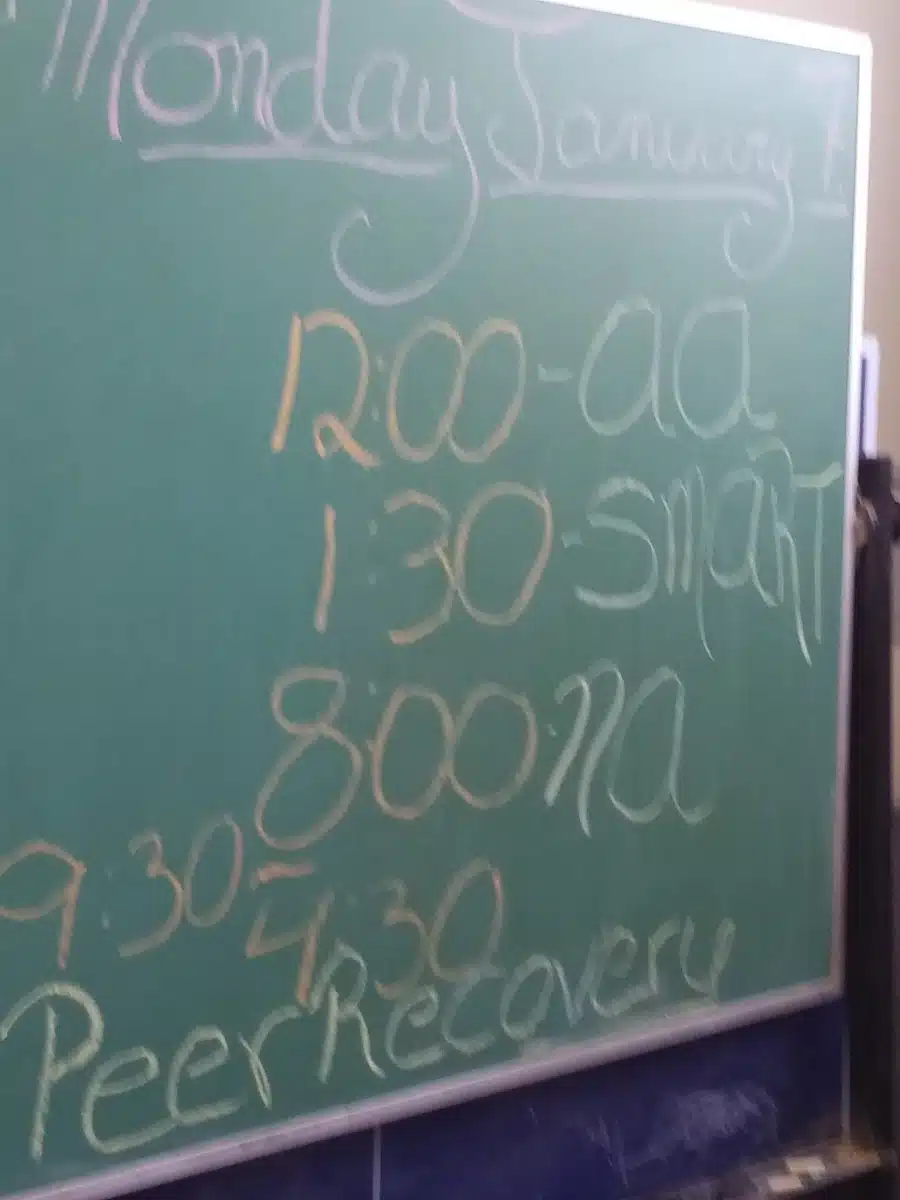 Monday January 1
12:00-aa
1:30-SMART
8:00-na
9:30-4:30
Peer Recovery